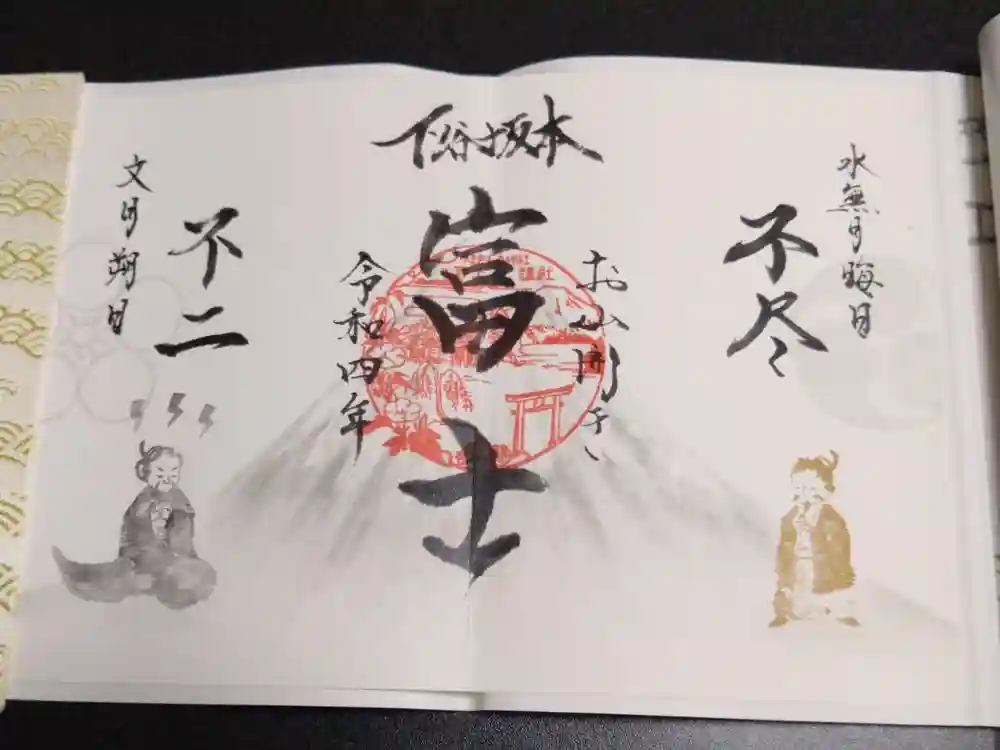 下谷坂本
水無月晦日
不尽
お山開き
富士
令和四年
不二
文月朔日